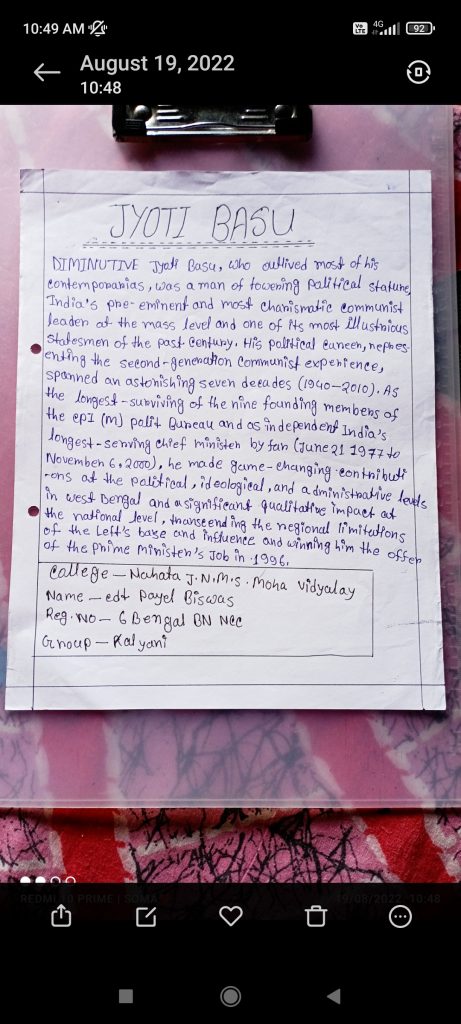 10:49 AM
4G
Vo LTE
92
August 19, 2022
10:48
JYOTI BASU
DIMINUTIVE Jyoti Basu, who outlived most of his
contemporarias, was a man of towering political stature,
India's pre-eminent and most charismatic communist
leader at the mass level and one of its most illustrious
statesmen of the past century. His political career, repres-
enting the second-generation communist experience,
spanned an astonishing seven decades (1940-2010). As
the longest-surviving of the nine founding members of
the CPI (M) polit Bureau and as independent India's
longest-serving chief minister by far (June 21 1977 to
November 6, 2000), he made game-changing contributi
-ons at the political, ideological, and administrative levels
in west Bengal and a significant qualitative impact at
the national level, transcending the regional limitations
of the Left's base and influence and winning him the offer
of the prime Minister's Job in 1996.
College - Nahata J.N.M.S. Moha vidyalay
Name - cdt Payel Biswas
Reg. NO - 6 Bengal BN NCC
Group - Kalyani
REDMI 10 PRIME | SOMA
19/08/2022 10:48